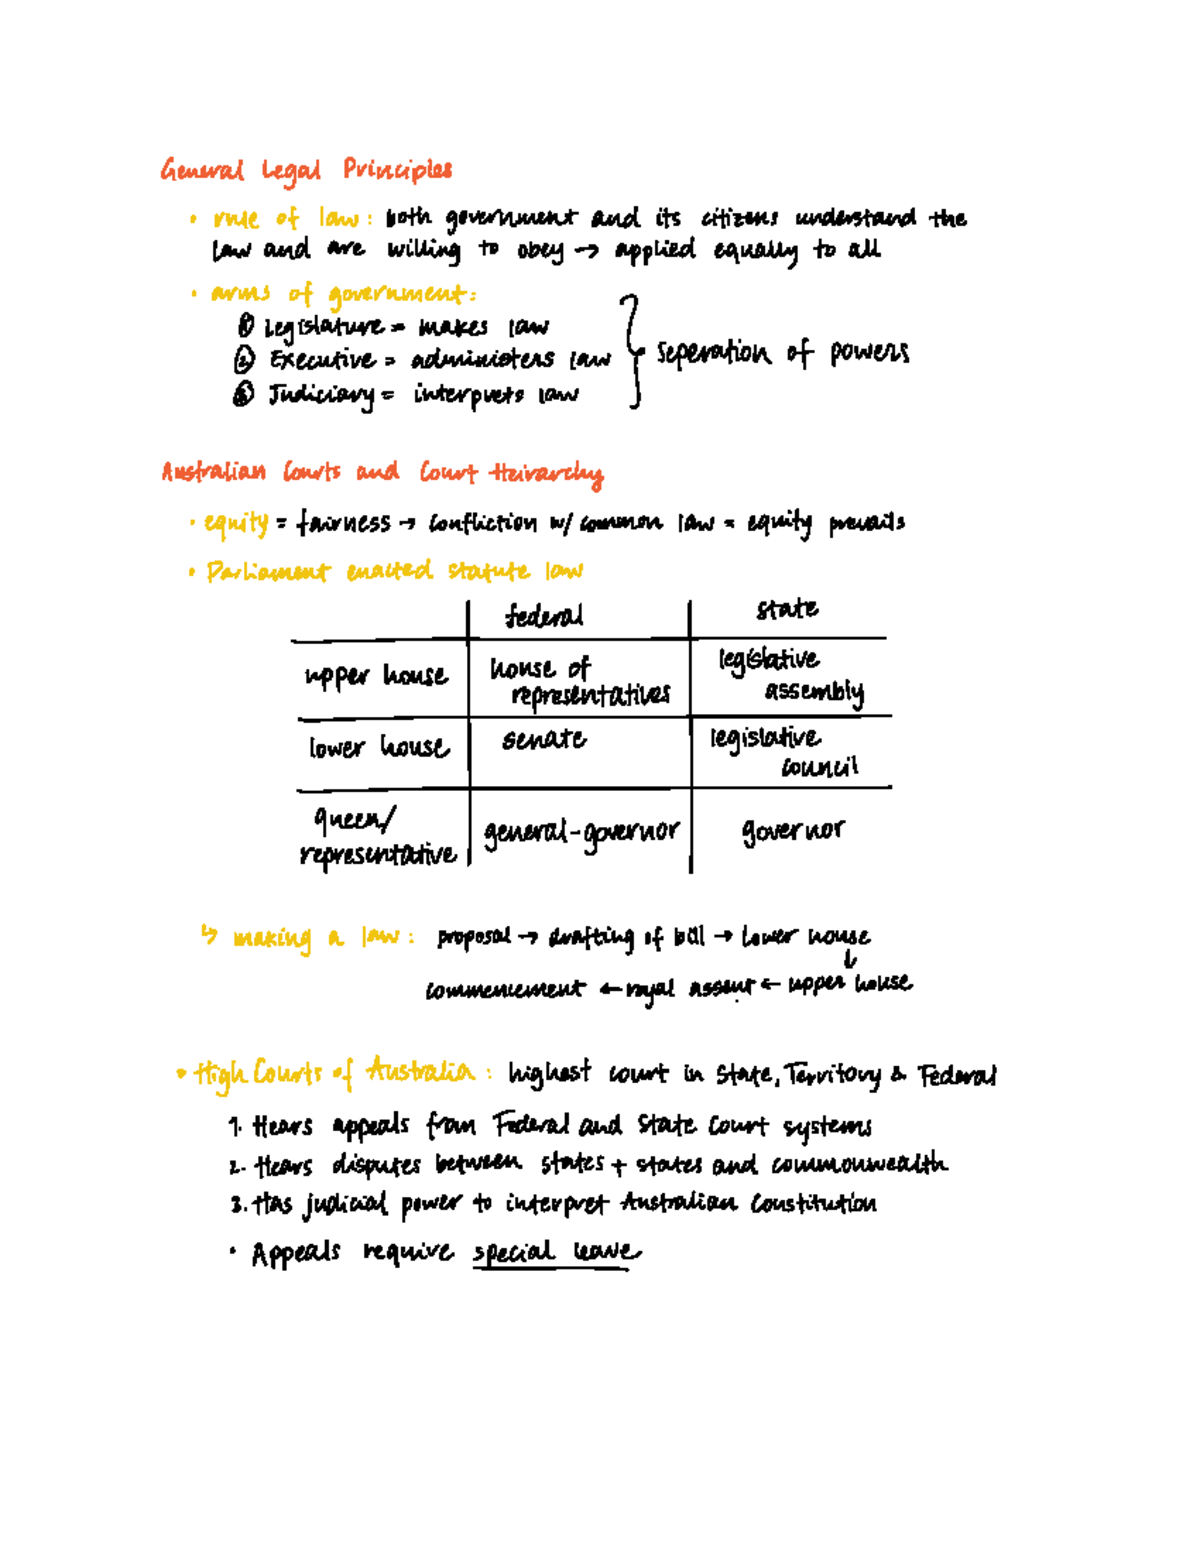 General Legal Principles
• rule of law: both government and its citizens understand the
law and are willing to obey → applied equally to all
• arms of government:
① Legislature = makes law
② Executive = administers law
③ Judiciary = interprets law
} seperation of powers
Australian Courts and Court Heirarchy
• equity = fairness → confliction w/ common law = equity prevails
• Parliament enacted statute law
federal state
upper house house of representatives legislative assembly
lower house senate legislative council
queen/representative general-governor governor
↳ making a law: proposal → drafting of bill → lower house
↓
commencement ← royal assent ← upper house
• High Courts of Australia: highest court in State, Territory & Federal
1. Hears appeals from Federal and State Court systems
2. Hears disputes between states + states and commonwealth
3. Has judicial power to interpret Australian Constitution
• Appeals require special leave